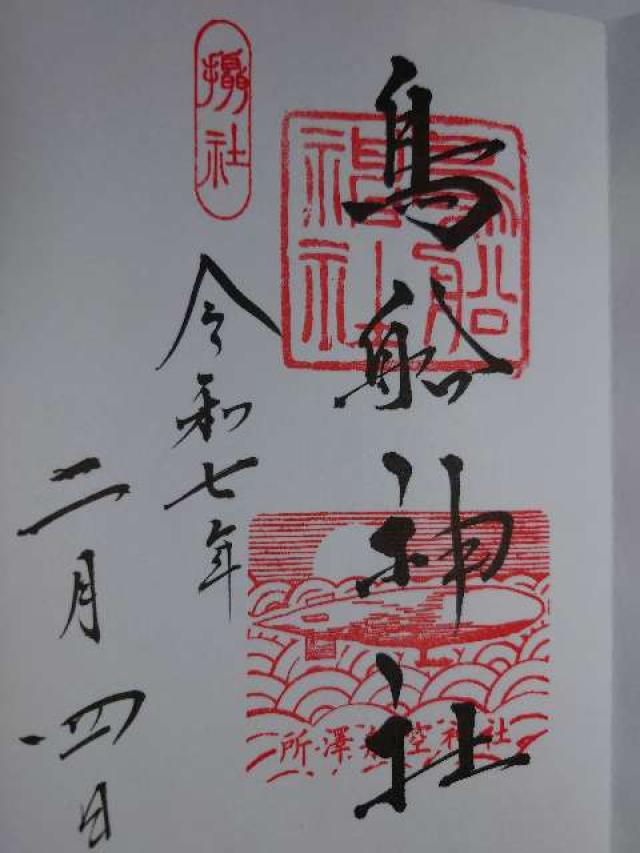 鳥船神社
鳥船
神社
所澤航空神社
攝社
令和七年
二月四日